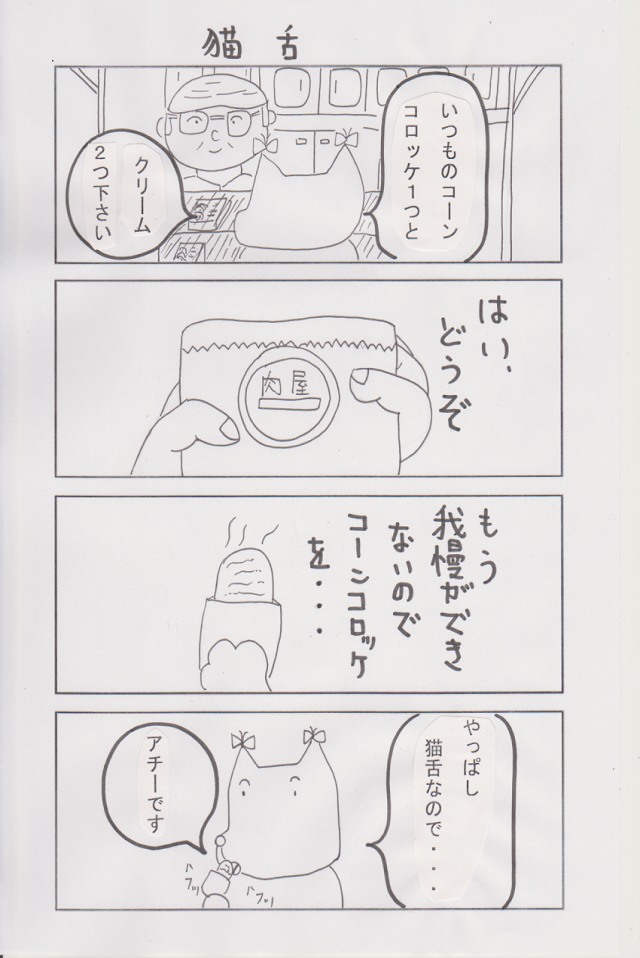 猫舌
いつものコーン
コロッケ1つと
クリーム
2つ下さい
はい、
どうぞ
肉屋
もう
我慢ができ
ないので
コーンコロッケ
を・・・
やっぱし
猫舌なので・・・
アチーです
ハフッ
ハフッ